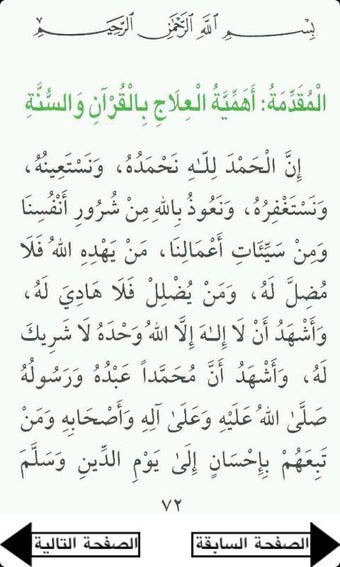 بِسْمِ اللَّهِ الرَّحْمَٰنِ الرَّحِيمِ
الْمُقَدِّمَةُ: أَهَمِّيَّةُ الْعِلَاجِ بِالْقُرْآنِ وَالسُّنَّةِ
إِنَّ الْحَمْدَ لِلَّـهِ نَحْمَدُهُ، وَنَسْتَعِينُهُ،
وَنَسْتَغْفِرُهُ، وَنَعُوذُ بِاللهِ مِنْ شُرُورِ أَنْفُسِنَا
وَمِنْ سَيِّئَاتِ أَعْمَالِنَا، مَنْ يَهْدِهِ اللهُ فَلَا
مُضِلَّ لَهُ، وَمَنْ يُضْلِلْ فَلَا هَادِيَ لَهُ،
وَأَشْهَدُ أَنْ لَا إِلَـٰهَ إِلَّا اللهُ وَحْدَهُ لَا شَرِيكَ
لَهُ، وَأَشْهَدُ أَنَّ مُحَمَّداً عَبْدُهُ وَرَسُولُهُ
صَلَّىٰ اللهُ عَلَيْهِ وَعَلَىٰ آلِهِ وَأَصْحَابِهِ وَمَنْ
تَبِعَهُمْ بِإِحْسَانٍ إِلَىٰ يَوْمِ الدِّينِ وَسَلَّمَ
٧٢
الصفحة السابقة
الصفحة التالية